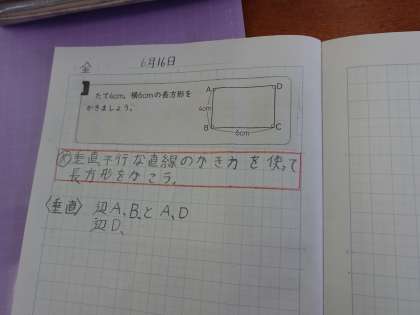 金
6月16日
たて4cm、横6cmの長方形を
かきましょう。
A
D
4cm
B
C
6cm
め 垂直、平行な直線のかき方を使って
長方形をかこう。
〈垂直〉 辺A、BとA、D
辺D、